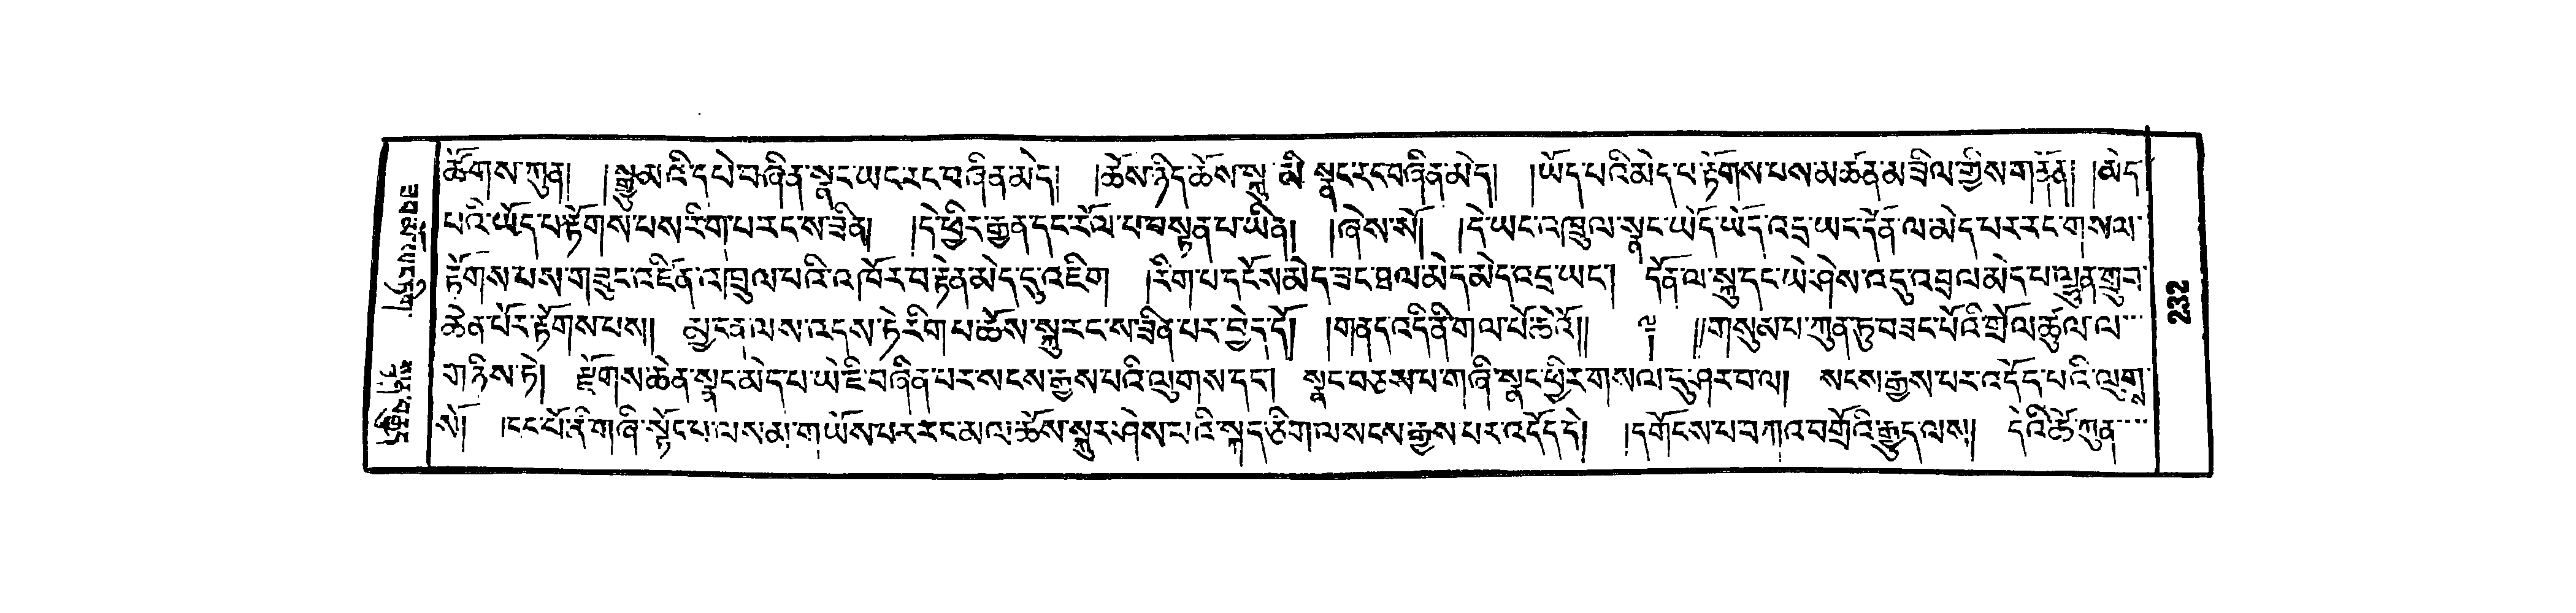 ཚོགས་ཀུན། །སྒྱུ་མའི་དཔེ་བཞིན་སྣང་ཡང་རང་བཞིན་མེད། །ཆོས་ཉིད་ཆོས་སྐུ་མི་སྣང་རང་བཞིན་མེད། །ཡོད་པའི་མེད་པ་རྟོགས་པས་མཚན་མ་ཟིལ་གྱིས་གནོན། །མེད་
པའི་ཡོད་པ་རྟོགས་པས་རིག་པ་རང་ས་ཟིན། །དེ་ཕྱིར་རྒྱན་དང་རོལ་པ་བསྟན་པ་ཡིན། །ཞེས་སོ། །དེ་ཡང་འཁྲུལ་སྣང་ཡོད་ཡོད་འདྲ་ཡང་དོན་ལ་མེད་པར་རང་གསལ་
རྟོགས་པས་གཟུང་འཛིན་འཁྲུལ་པའི་འཁོར་བ་རྟེན་མེད་དུ་འཇིག །རིག་པ་དངོས་མེད་ཟང་ཐལ་མེད་མེད་འདྲ་ཡང་། དོན་ལ་སྐུ་དང་ཡེ་ཤེས་འདུ་འབྲལ་མེད་པ་ལྷུན་གྲུབ་
ཆེན་པོར་རྟོགས་པས། མྱ་ངན་ལས་འདས་ཏེ་རིག་པ་ཆོས་སྐུ་རང་ས་ཟིན་པར་བྱེད་དོ། །གནད་འདི་ནི་གལ་པོ་ཆེའོ།། ༈ །།གསུམ་པ་ཀུན་ཏུ་བཟང་པོའི་གྲོལ་ཚུལ་ལ་
གཉིས་ཏེ། རྫོགས་ཆེན་སྣང་མེད་པ་ཡེ་ཇི་བཞིན་པར་སངས་རྒྱས་པའི་ལུགས་དང་། སྣང་བཅས་པ་གཞི་སྣང་ཕྱིར་གསལ་དུ་ཤར་བ་ལ། སངས་རྒྱས་པར་འདོད་པའི་ལུགས་
སོ། །དང་པོ་ནི་གཞི་སྟོང་པ་ལས་མ་གཡོས་པར་རང་མལ་ཆོས་སྐུར་ཤེས་པའི་སྐད་ཅིག་ལ་སངས་རྒྱས་པར་འདོད་དེ། །དགོངས་པ་བཀའ་བགྲོའི་རྒྱུད་ལས། དེའི་ཚེ་ཀུན་